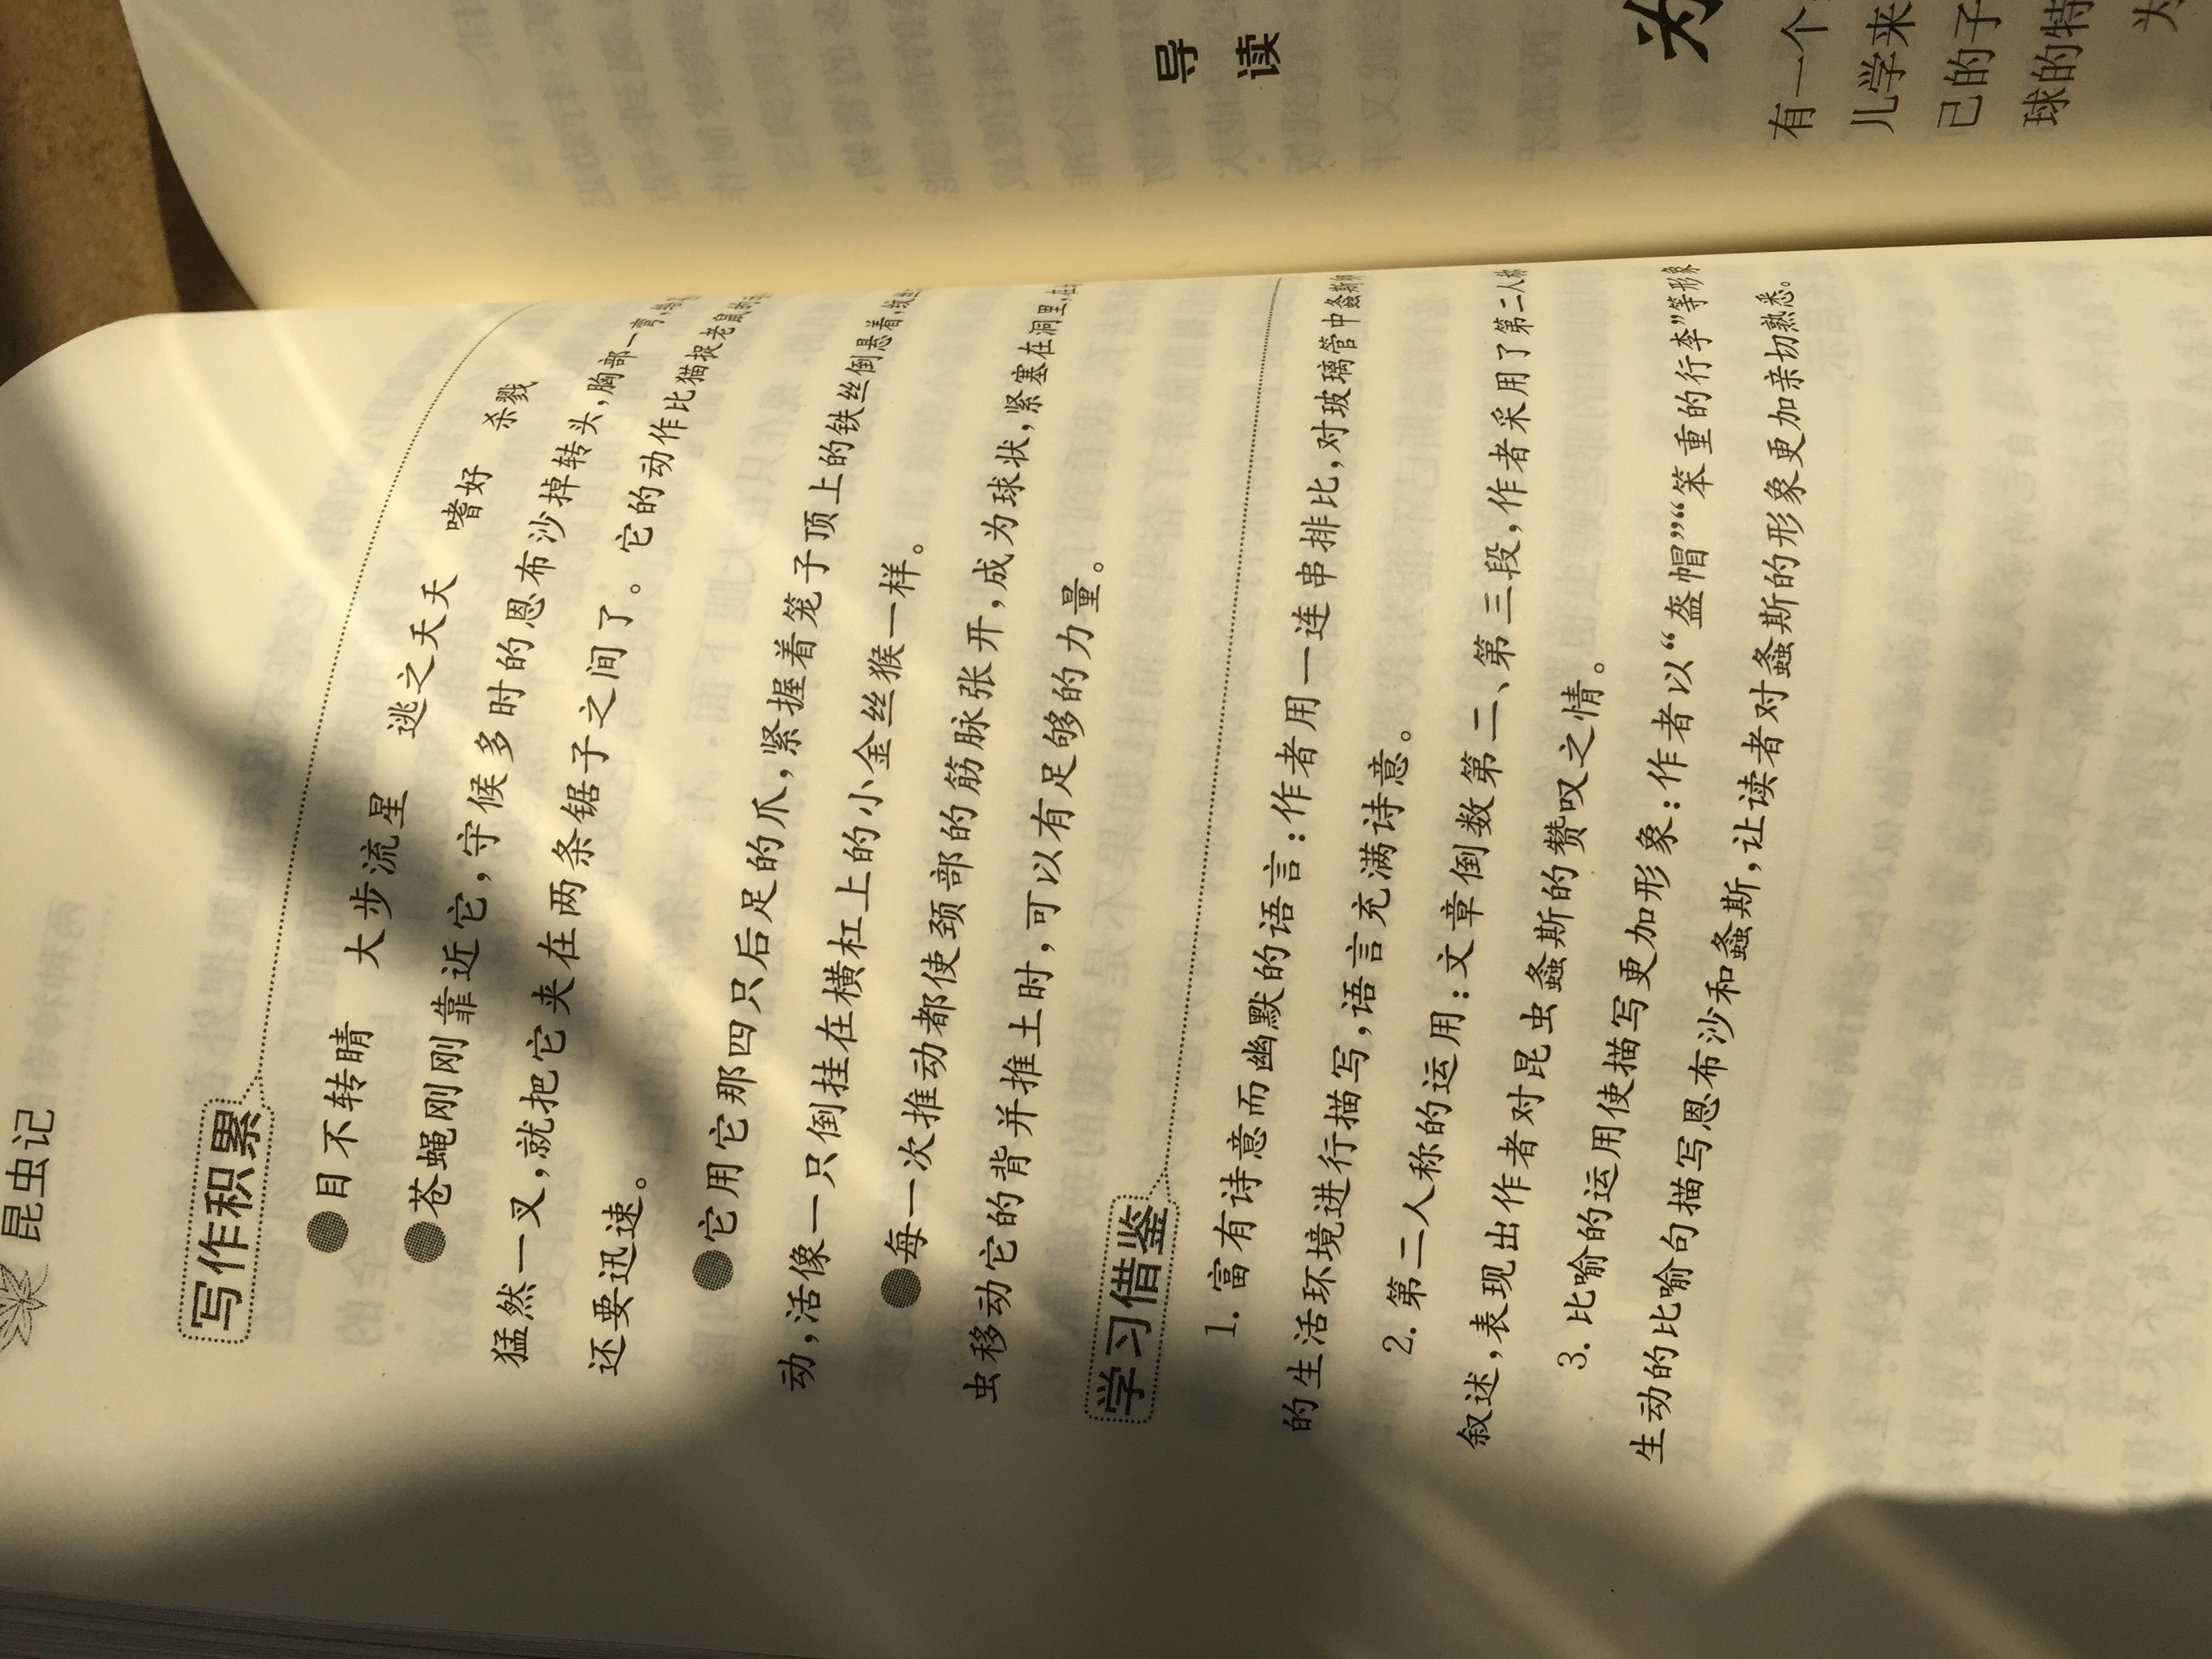 昆虫记
写作积累
目不转睛 大步流星 逃之夭夭 嗜好 杀戮
苍蝇刚刚靠近它,守候多时的恩布沙掉转头,胸部一弯,
猛然一叉,就把它夹在两条锯子之间了。它的动作比猫捉老鼠
还要迅速。
它用它那四只后足的爪,紧握着笼子顶上的铁丝倒悬着,
动,活像一只倒挂在横杠上的小金丝猴一样。
每一次推动都使颈部的筋脉张开,成为球状,紧塞在洞里,
虫移动它的背并推土时,可以有足够的力量。
学习借鉴
1. 富有诗意而幽默的语言:作者用一连串排比,对玻璃管中螽斯
的生活环境进行描写,语言充满诗意。
2. 第二人称的运用:文章倒数第二、第三段,作者采用了第二人称
叙述,表现出作者对昆虫螽斯的赞叹之情。
3. 比喻的运用使描写更加形象:作者以“盔帽”“笨重的行李”等形象
生动的比喻句描写恩布沙和螽斯,让读者对螽斯的形象更加亲切熟悉。
导
读
为
有一个
儿学来
己的子
球的特
为